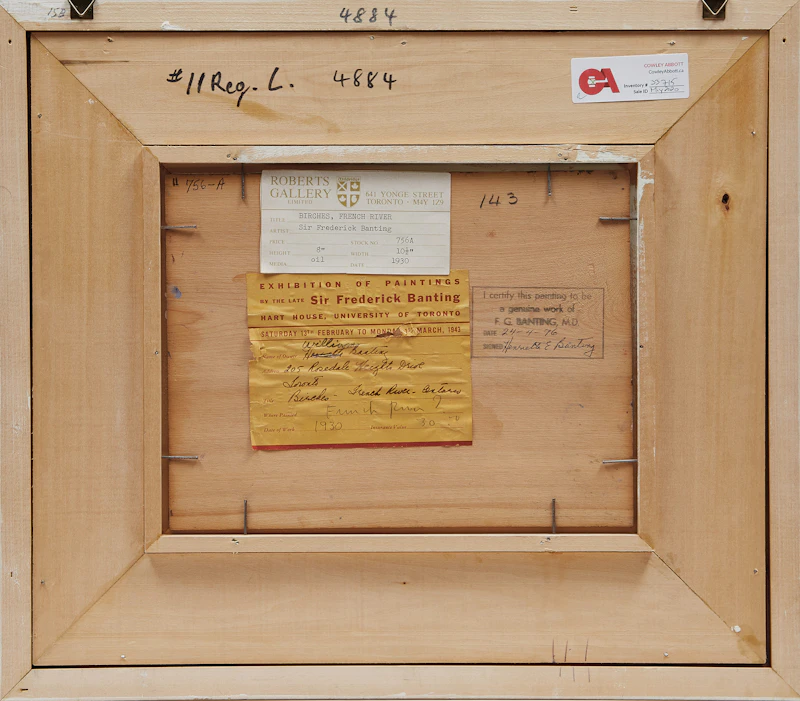 153
4884
#11 Reg. L. 4884
COWLEY ABBOTT
CowleyAbbott.ca
CA
Inventory #
Sale ID
756-A
143
ROBERTS
GALLERY
LIMITED
641 YONGE STREET
TORONTO - M4Y 1Z9
TITLE BIRCHES, FRENCH RIVER
ARTIST Sir Frederick Banting
PRICE STOCK NO. 756A
HEIGHT 8" WIDTH 10½"
MEDIA oil DATE 1930
EXHIBITION OF PAINTINGS
BY THE LATE Sir Frederick Banting
HART HOUSE, UNIVERSITY OF TORONTO
SATURDAY 13TH FEBRUARY TO MONDAY 1ST MARCH, 1943
William
Name of Owner Banting
205 Rosedale Heights Drive
Toronto
Title Birches - French River - Ontario
Where Painted French River ?
Date of Work 1930 Insurance Value 50
I certify this painting to be
a genuine work of
F. G. BANTING, M.D
DATE 24-4-76
SIGNED Henrietta E Banting